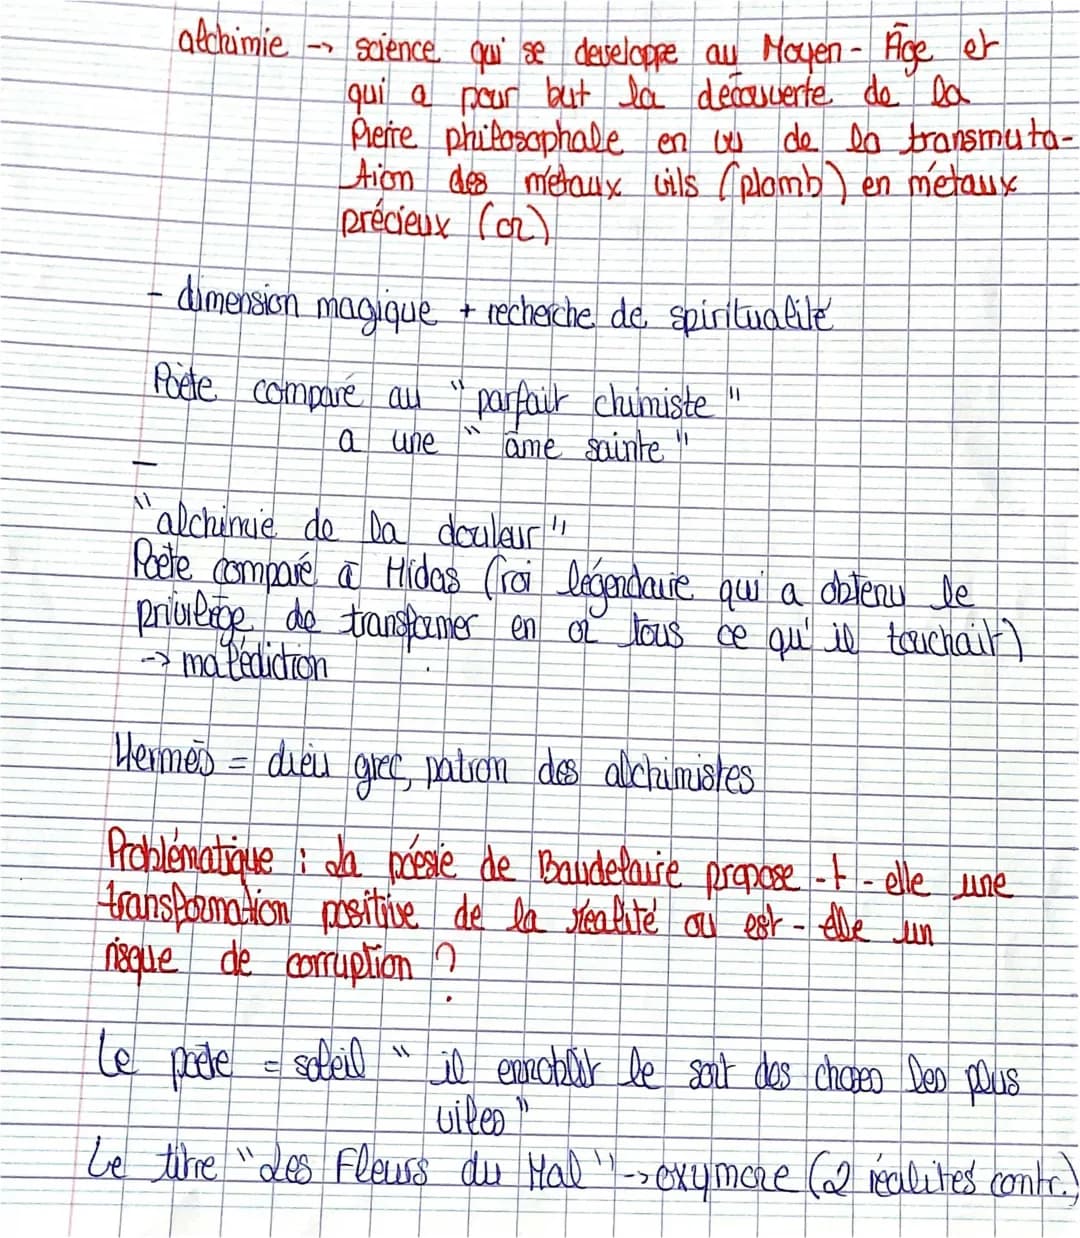 alchimie -> science qui se developpe au Moyen-Âge et
qui a pour but la découverte de la
Pierre philosophale en vu de la transmuta-
-tion des métaux vils (plomb) en métaux
précieux (or)
- dimension magique + recherche de spiritualité
Poète comparé au "parfait chimiste"
a une "âme sainte"
"alchimie de la douleur"
Poète comparé à Midas (roi légendaire qui a obtenu le
privilège de transformer en or tous ce qu'il touchait)
-> malédiction
Hermès = dieu grec, patron des alchimistes
Problématique : La poésie de Baudelaire propose-t-elle une
transformation positive de la réalité ou est-elle un
risque de corruption ?
Le poète = soleil "il ennoblit le sort des choses les plus
viles"
Le titre "Les Fleurs du Mal" -> oxymore (2 réalités contr.)